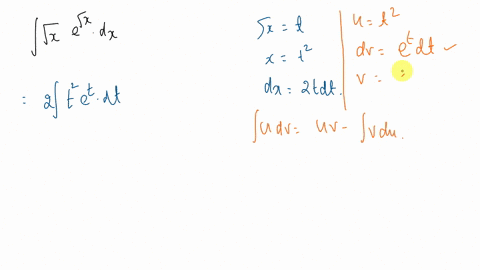 ∫√x e^√x · dx
= 2∫ t² e^t · dt
√x = t
x = t²
dx = 2t dt.
u = t²
dv = e^t dt ✓
v = :
∫u dv = uv - ∫v du.